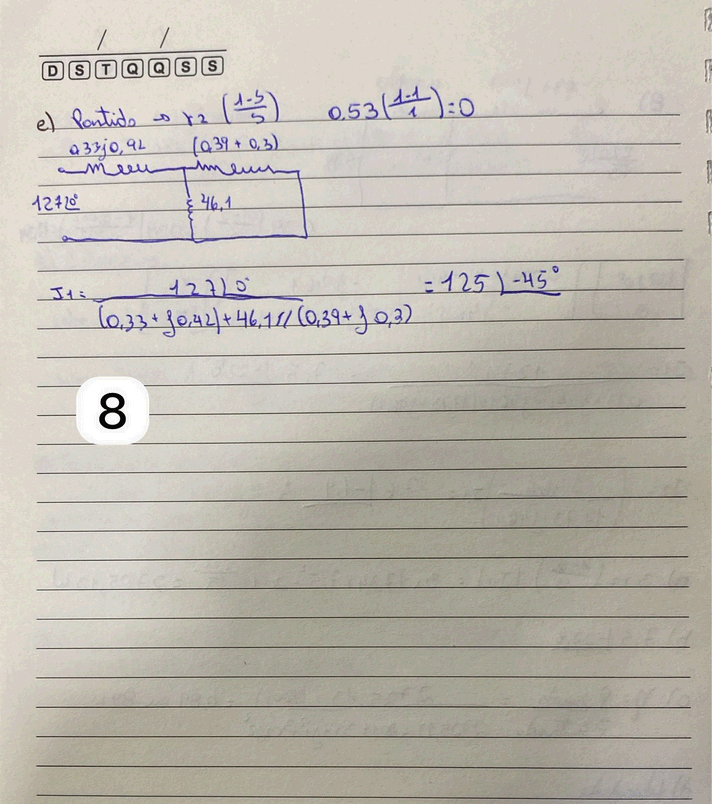 / /
D S T Q Q S S
e) Partida → r2 (1-5/5) 0,53(1-1/1)=0
0,33j0,42 (0,39 + 0,3)
127∠0°
46,1
I1 = 127∠0° / (0,33 + j0,42)+46,1//(0,39+j0,3) = 125∠-45°
8